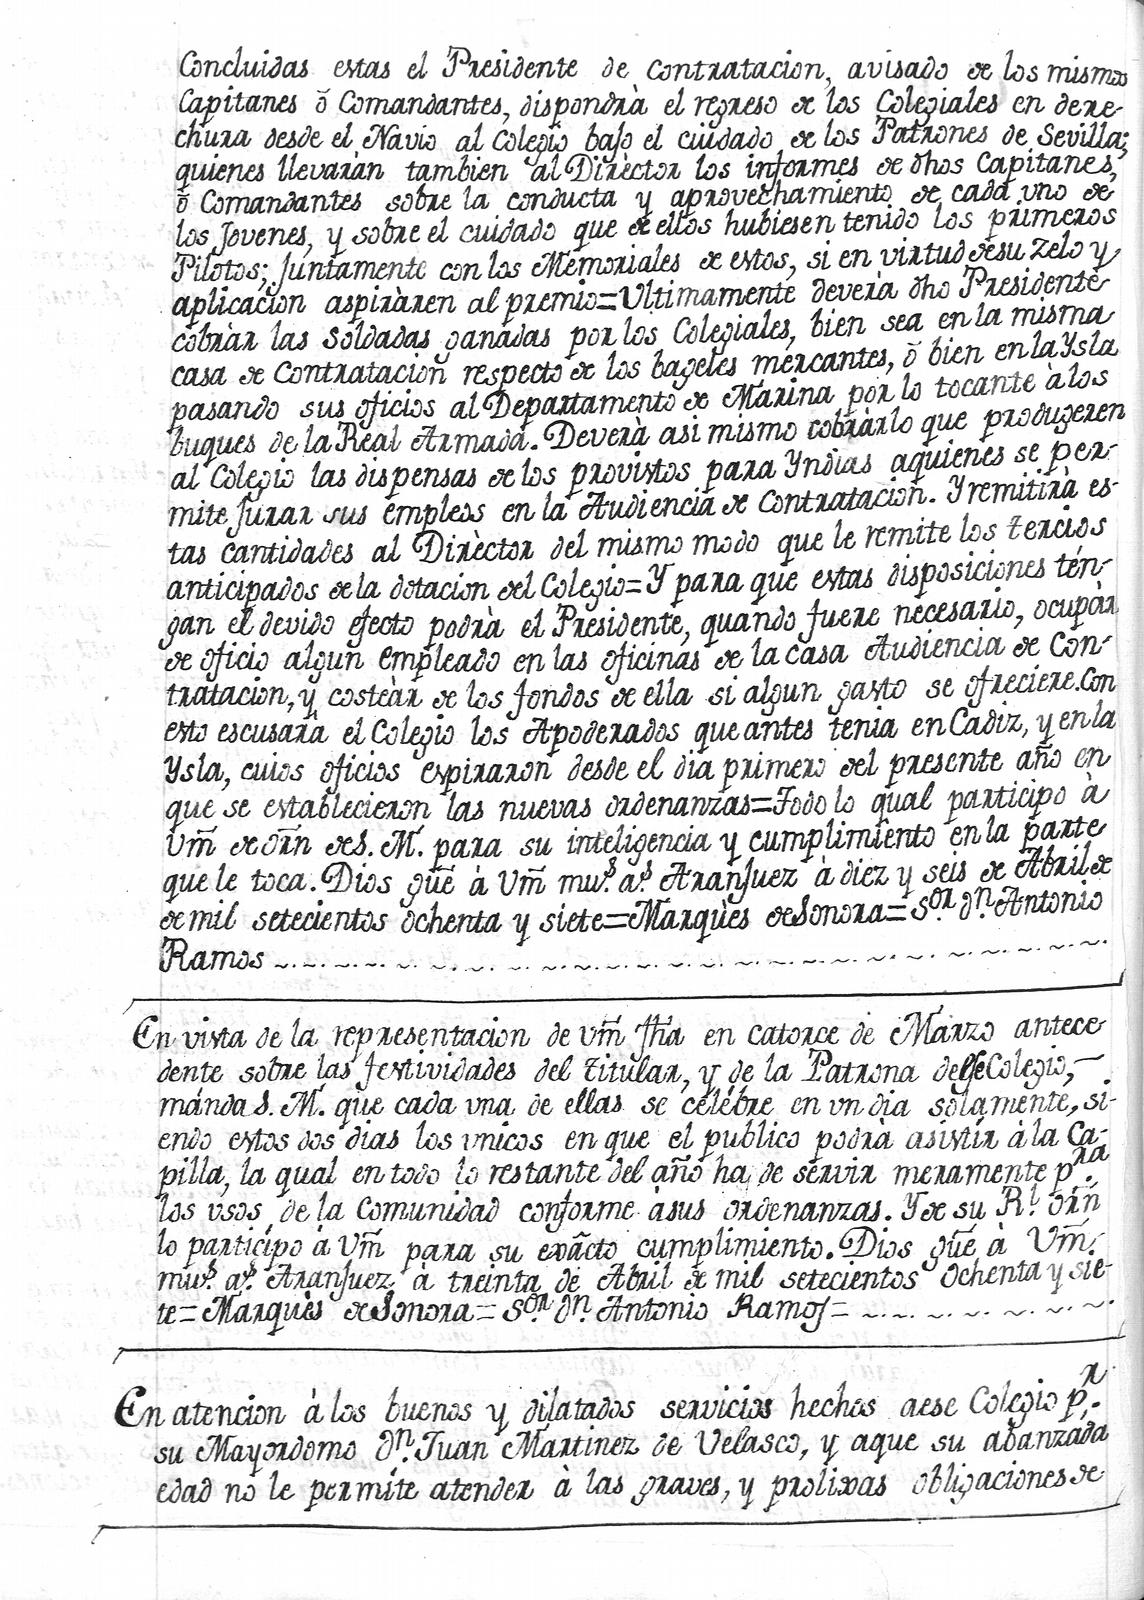 Concluidas estas el Presidente de Contratacion, avisado de los mismos
Capitanes ō Comandantes, dispondrà el regreso de los Colegiales en dere-
chura desde el Navio al Colegio bajo el cuidado de los Patrones de Sevilla;
quienes llevaràn tambien al Dirèctor los informes de dhos Capitanes,
ō Comandantes sobre la conducta y aprovechamiento de cada vno de
los Jovenes, y sobre el cuidado que de ellos hubiesen tenido los primeros
Pilotos; Juntamente con los Memoriales de estos, si en virtud de su Zelo y
aplicacion aspiràren al premio=Ultimamente deverà dho Presidente
cobràr las Soldadas ganadas por los Colegiales, bien sea en la misma
casa de Contratacion respecto de los bageles mercantes, ō bien en la Ysla
pasando sus oficios al Departamento de Marina por lo tocante à los
buques de la Real Armada. Deverà asi mismo cobràrlo que produgeren
al Colegio las dispensas de los provistos para Yndias aquienes se per-
mite Jurar sus empleos en la Audiencia de Contratacion. Y remitirà es-
tas cantidades al Dirèctor del mismo modo que le remite los tercios
anticipados de la dotacion del Colegio=Y para que estas disposiciones tén-
gan el devido efecto podrà el Presidente, quando fuere necesario, ocupàr
de oficio algun empleado en las oficinas de la casa Audiencia de Con-
tratacion, y costeàr de los fondos de ella si algun gasto se ofreciere. Con
esto escusarà el Colegio los Apoderados que antes tenia en Cadiz, y en la
Ysla, cuios oficios espiraron desde el dia primero del presente año en
que se establecieron las nuevas ordenanzas=Todo lo qual participo à
Vm̃ de orn̄ de S. M. para su inteligencia y cumplimiento en la parte
que le toca. Dios gūe à Vm̃ mu.s a.s Aranjuez à diez y seis de Abril de
de mil setecientos ochenta y siete=Marquès de Sonora=S.or D.n Antonio
Ramos
En vista de la representacion de Vm̃ fha en catorce de Marzo antece-
dente sobre las festividades del titular, y de la Patrona de ese Colegio,
manda S. M. que cada vna de ellas se celèbre en vn dia solamente, si-
endo estos dos dias los vnicos en que el publico podrà asistir à la Ca-
pilla, la qual en todo lo restante del año ha de servir meramente p.ra
los vsos de la Comunidad conforme àsus ordenanzas. Y de su R.l orn̄
lo participo à Vm̃ para su exàcto cumplimiento. Dios gūe à Vm̃.
mu.s a.s Aranjuez à treinta de Abril de mil setecientos ochenta y sie-
te=Marquès de Sonora=S.or D.n Antonio Ramos=
En atencion à los buenos y dilatados servicios hechos aese Colegio p.r
su Mayordomo D.n Juan Martinez de Velasco, y aque su abanzada
edad no le permite atender à las graves, y prolixas obligaciones de